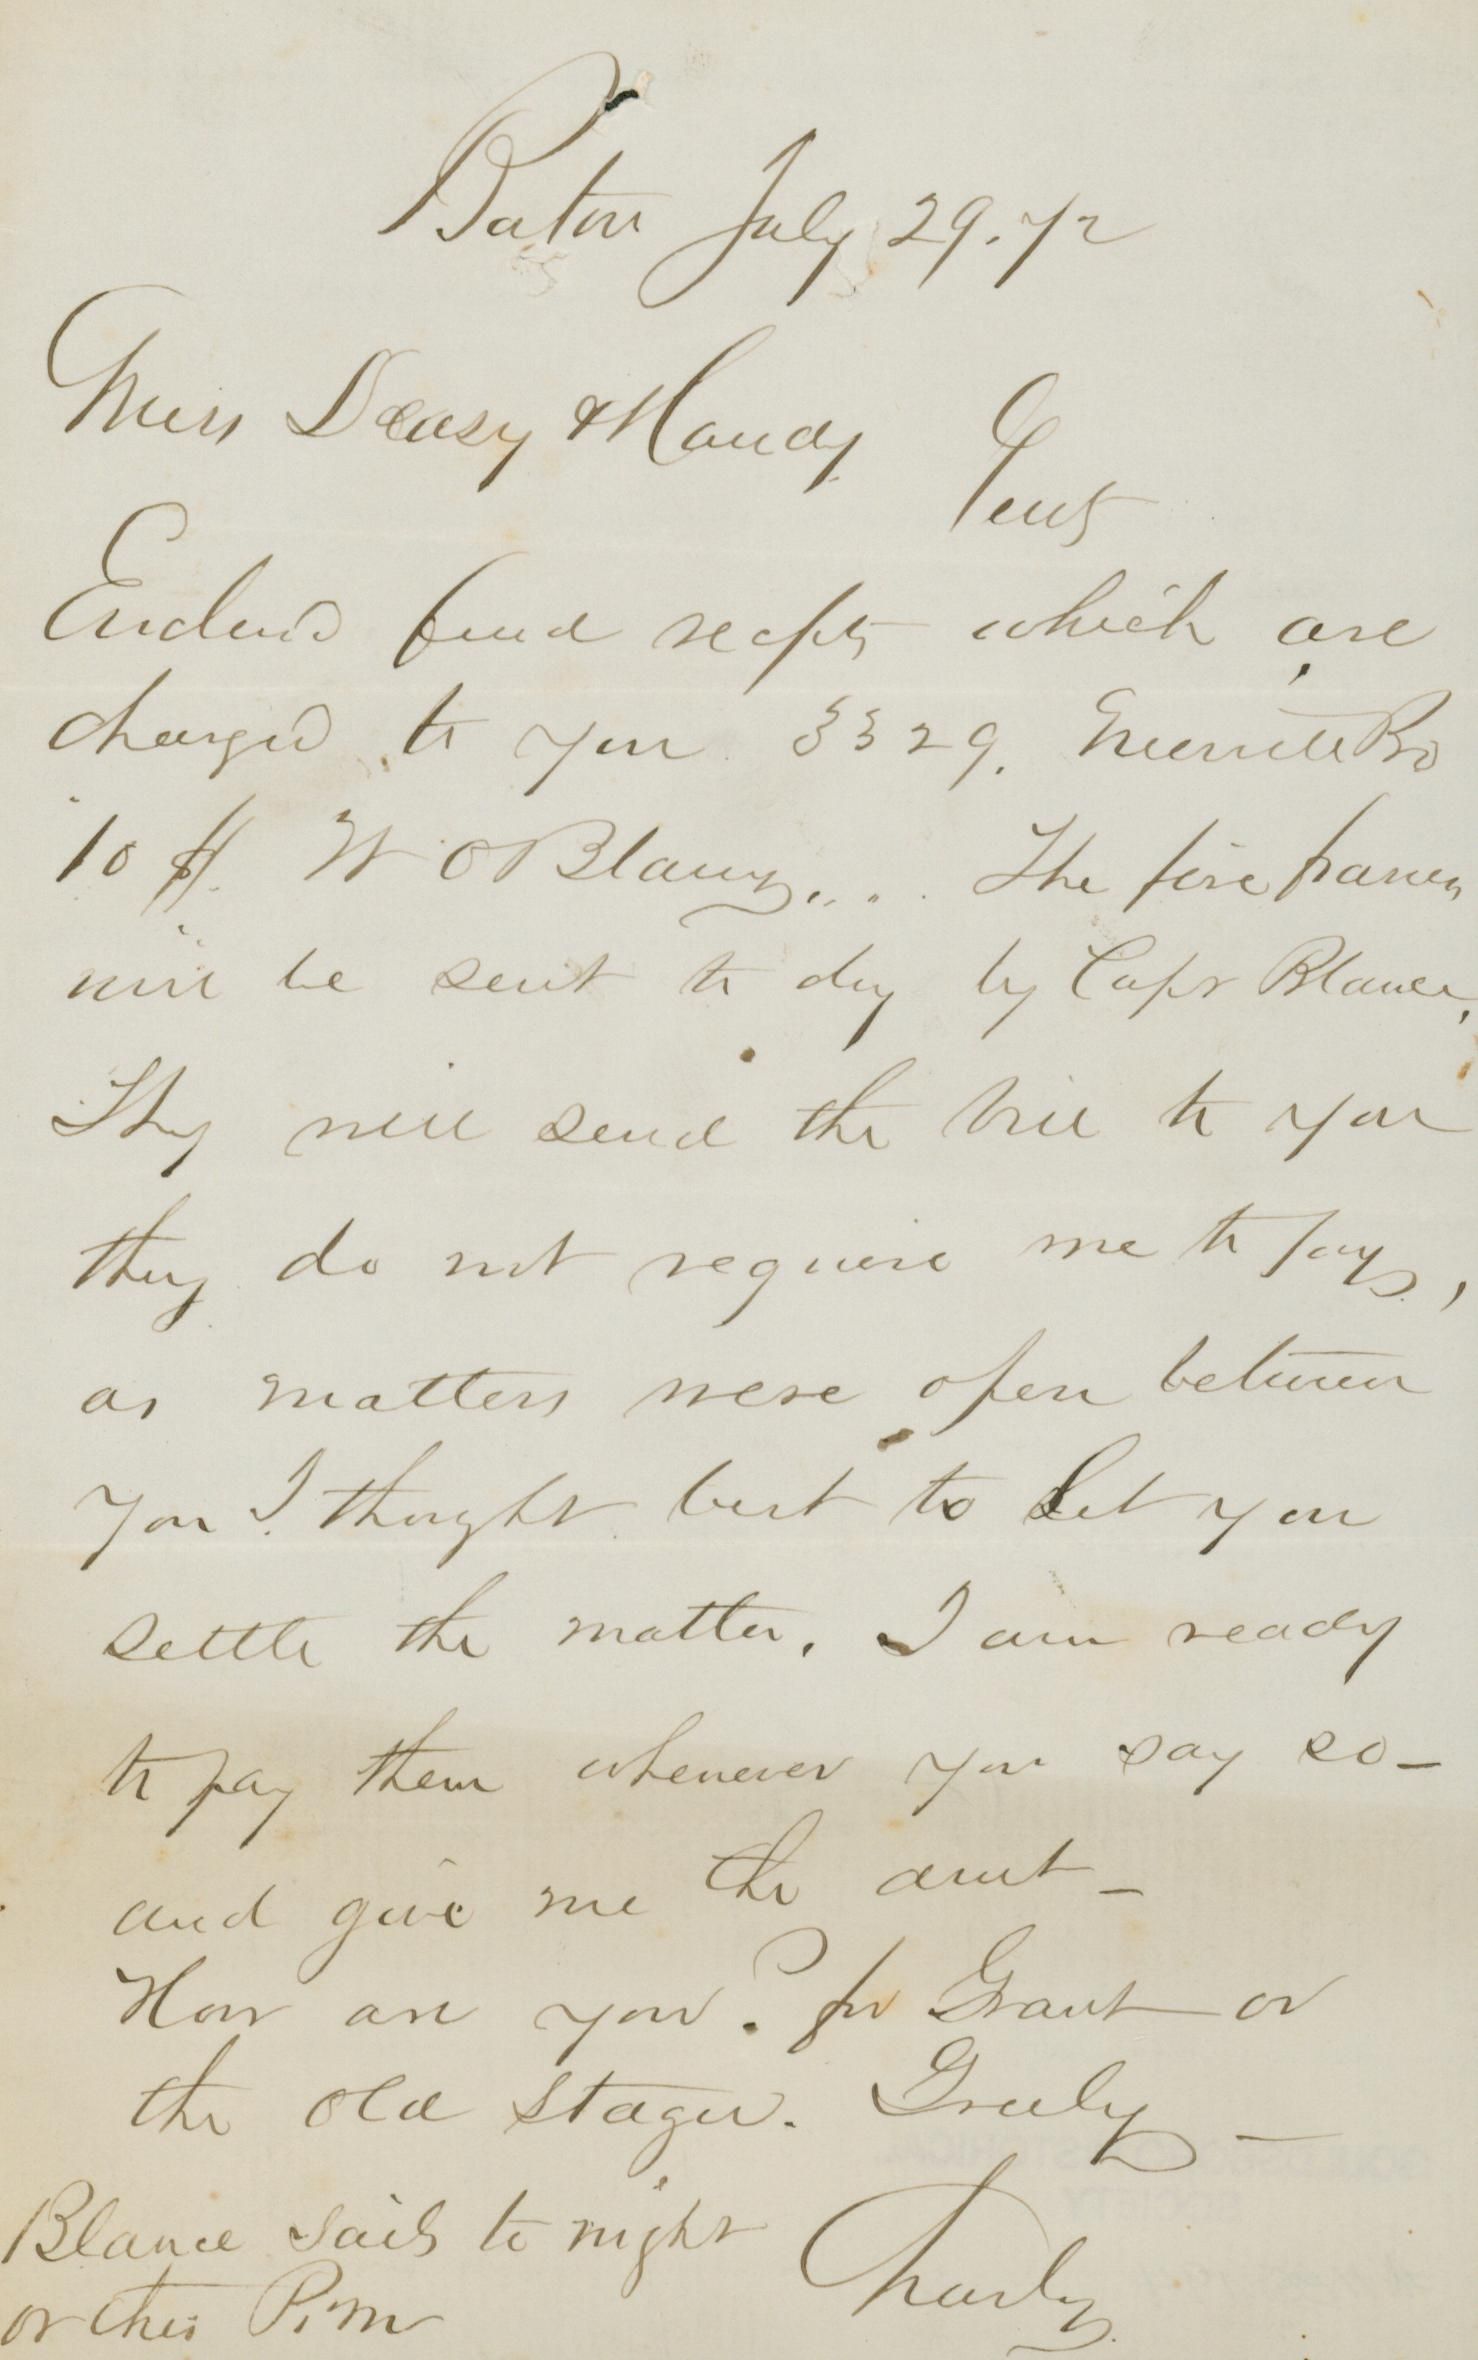 Boston July 29. 72
Mess Deasy & Handy
Gents
Enclosd find recpts which are
charged to you 3329. Merrill Bro
10 $. W O Blany...
The fire frames
will be sent to day by Capt Blance,
They will send the bill to you
they do not require me to pay,
as matters were open between
you I thought best to let you
settle the matter. I am ready
to pay them whenever you say so—
and give me the amt—
How are you. for Grant or
the old stager. Greely—
Charley
Blance sails to night
or this P.M